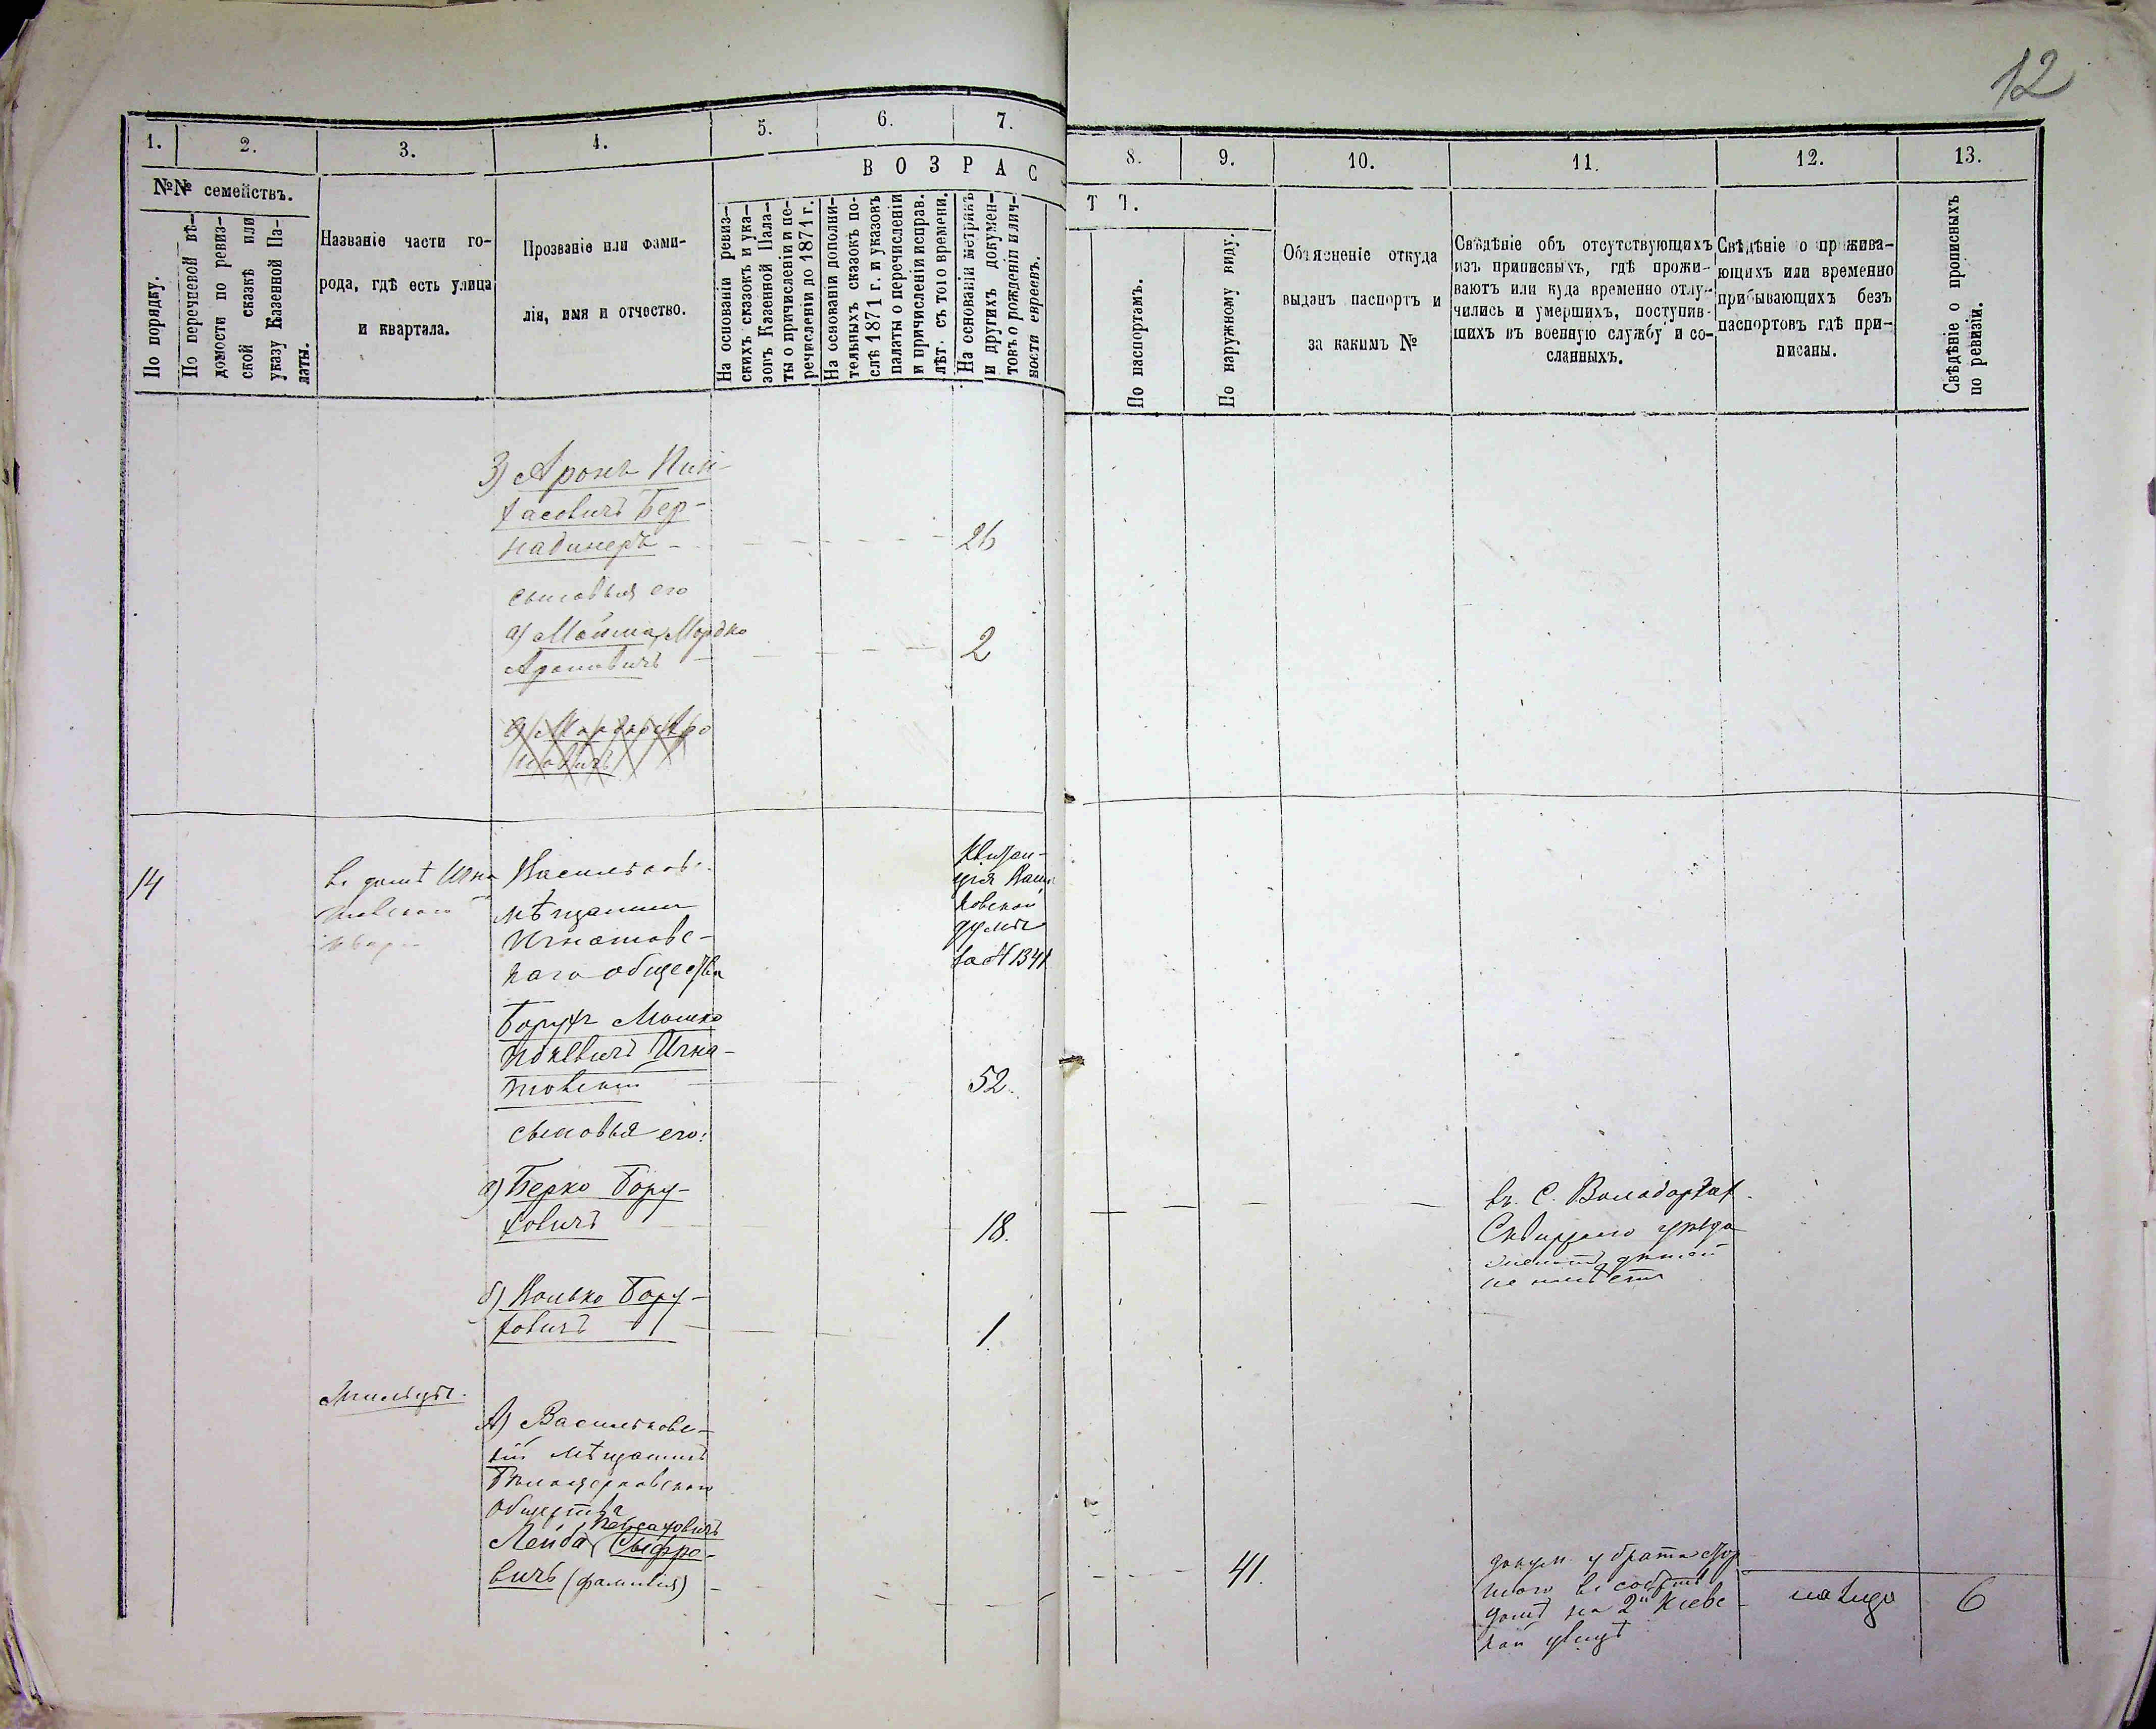 12
1. 2. 3. 4. 5. 6. 7. 8. 9. 10. 11. 12. 13.
№№ семействъ.
По порядку.
По перечневой вѣ-
домости по ревиз-
ской сказкѣ или
указу Казенной Па-
латы.
Названіе части го-
рода, гдѣ есть улица
и квартала.
Прозваніе или фами-
лія, имя и отчество.
В О З Р А С Т Ъ.
На основаніи ревиз-
скихъ сказокъ и ука-
зовъ Казенной Пала-
ты о причисленіи и пе-
речисленіи до 1871 г.
На основаніи дополни-
тельныхъ сказокъ по-
слѣ 1871 г. и указовъ
палаты о перечисленіи
и причисленіи исправ.
лѣт. съ того времени.
На основаніи метрикъ
и другихъ докумен-
товъ о рожденіи и лич-
ности евреевъ.
По паспортамъ.
По наружному виду.
Объясненіе откуда
выданъ паспортъ и
за какимъ №
Свѣдѣніе объ отсутствующихъ
изъ приписныхъ, гдѣ прожи-
ваютъ или куда временно отлу-
чились и умершихъ, поступив-
шихъ въ военную службу и со-
сланныхъ.
Свѣдѣніе о прожива-
ющихъ или временно
прибывающихъ безъ
паспортовъ гдѣ при-
писаны.
Свѣдѣніе о прописныхъ
по ревизіи.
3) Аронъ Пин-
хасовичъ Бер-
надинеръ 26
сыновья его
а) Мойша, Мордко
Ароновичъ 2
б) Мордко Аро
новичъ
14 въ домѣ Игна
товскаго
Васильков.
мѣщанинъ
Игнатовс-
каго общества
Квитан-
ція Васил
ковской
думы
за № 1341
Борухъ Мошко
Іокевичъ Игна-
товскій 52.
сыновья его:
а) Берко Бору-
ховичъ 18.
въ С. Володаркѣ
Сквирскаго уѣзда
женатъ дѣтей
не имѣетъ
б) Іонько Бору-
ховичъ 1.
Жильцы.
А) Васильковс-
кій мѣщанинъ
Бѣлоцерковскаго
общества
Пейсаховичъ
Лейба
вичъ (фамилія) 41.
докум. у брата
въ
домѣ на 2й Кіевс
кой улицѣ
6